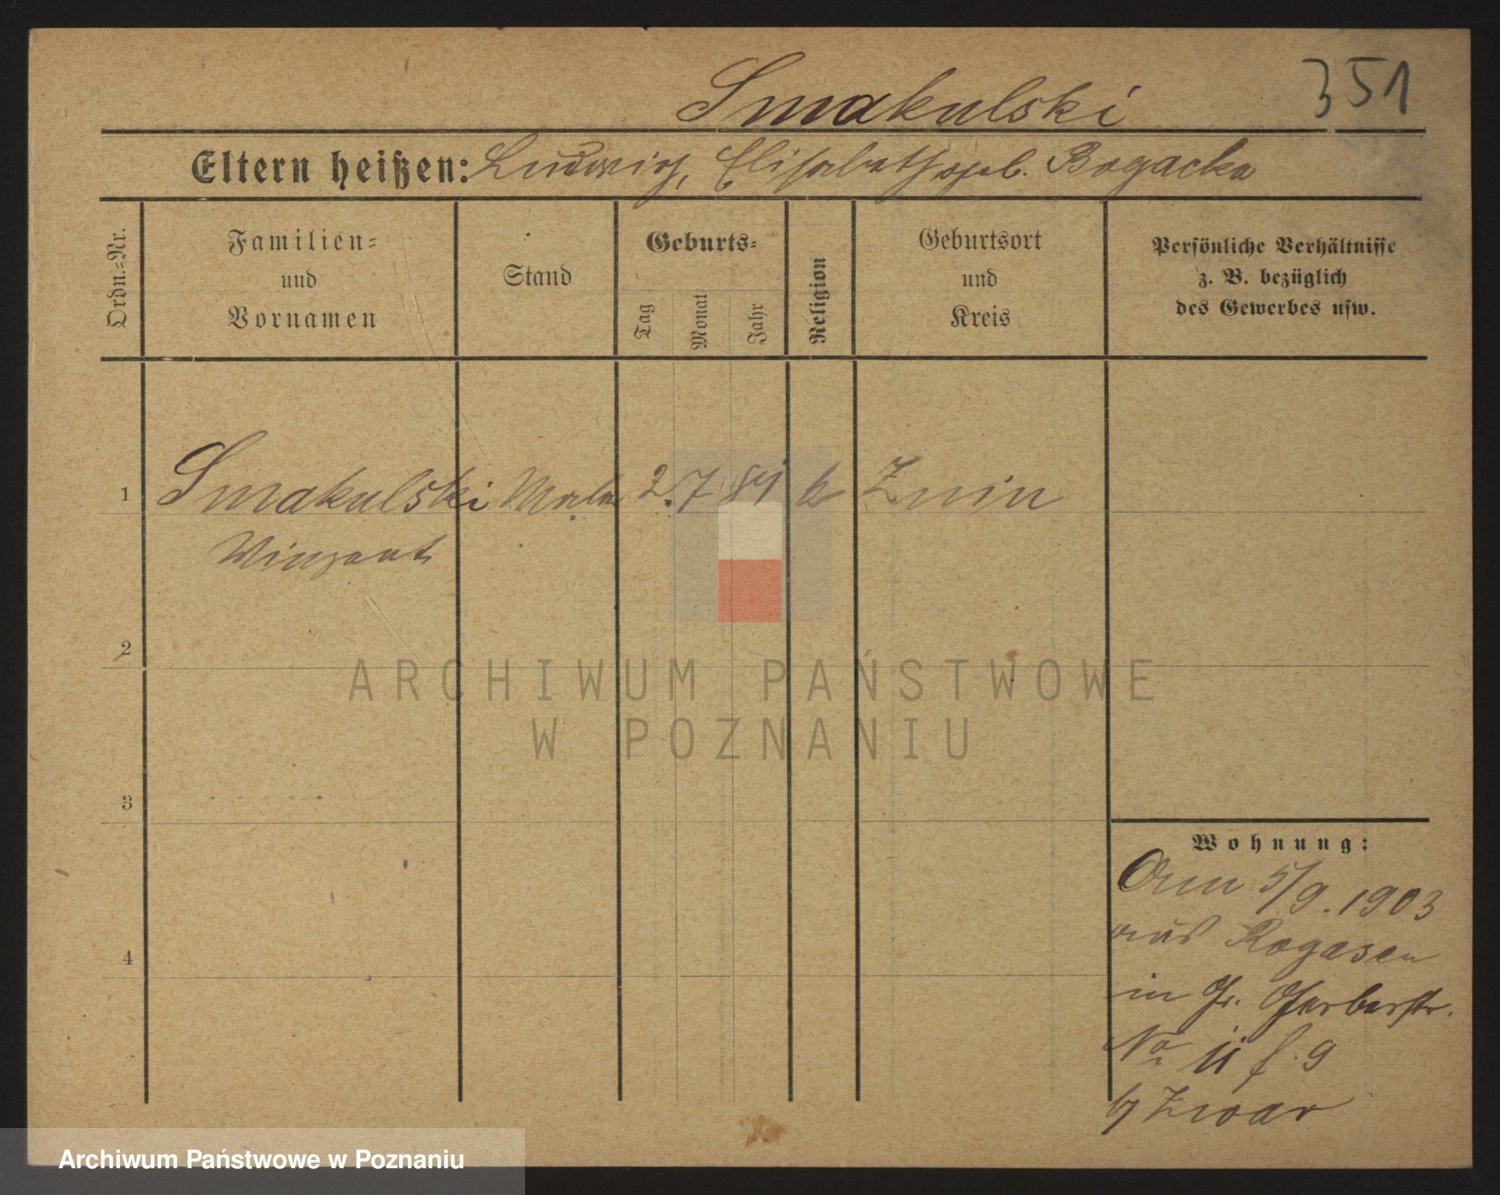 351
Smakulski
Eltern heißen: Ludwig, Elisabeth geb. Bogacka
Ordn.=Nr.
Familien=
und
Vornamen
Stand
Geburts=
Tag
Monat
Jahr
Religion
Geburtsort
und
Kreis
Persönliche Verhältnisse
z. B. bezüglich
des Gewerbes usw.
1 Smakulski 2. 7 81 k Znin
Winzent
2
3
4
Wohnung:
5/9. 1903
aus Rogasen
in Gr. Gerberstr.
No 11 f. 9
b/ Zwar
ARCHIWUM PAŃSTWOWE
W POZNANIU
Archiwum Państwowe w Poznaniu